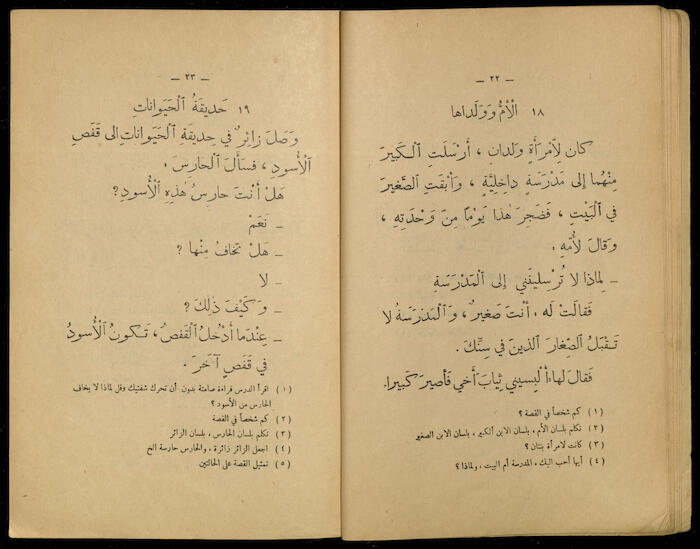 — ٢٢ —
١٨ اَلْأُمُّ وَوَلَداها
كان لِامْرَأَةٍ وَلَدانِ ، أَرْسَلَتِ الْكَبيرَ
مِنْهُما إلى مَدْرَسَةٍ داخِلِيَّةٍ ، وَأَبْقَتِ الصَّغيرَ
في الْبَيْتِ ، فَضَجِرَ هٰذا يَوْمًا مِنْ وَحْدَتِهِ ،
وَقالَ لِأُمِّهِ :
ـ لماذا لا تُرْسِلينَني إلى الْمَدْرَسَةِ
فَقالَتْ لَه ، أَنْتَ صَغيرٌ ، وَالْمَدْرَسَةُ لا
تَقْبَلُ الصِّغارَ الَّذينَ في سِنِّكَ .
فَقالَ لها : أَلْبِسيني ثِيابَ أَخي فَأَصيرَ كَبيرا .
(١) كم شخصاً في القصة ؟
(٢) تكلم بلسان الأم ، بلسان الابن الكبير ، بلسان الابن الصغير
(٣) كانت لامرأة بنتان ؟
(٤) أيها أحب اليك ، المدرسة أم البيت ، ولماذا ؟
— ٢٣ —
١٩ حَديقَةُ الْحَيَواناتِ
وَصَلَ زائِرٌ في حَديقَةِ الْحَيَواناتِ الى قَفَصِ
الْأُسودِ ، فَسَأَلَ الْحارِسَ .
هَلْ أَنْتَ حارِسُ هٰذِهِ الْأُسودِ ؟
ـ نَعَمْ
ـ هَلْ تَخافُ مِنْها ؟
ـ لا
ـ وَكَيْفَ ذٰلِكَ ؟
ـ عِنْدَما أَدْخُلُ الْقَفَصَ ، تَكونُ الْأُسودُ
في قَفَصٍ آخَرَ .
(١) اقرأ الدرس قراءة صامتة بدون أن تحرك شفتيك وقل لماذا لا يخاف
الحارس من الأسود ؟
(٢) كم شخصاً في القصة
(٣) تكلم بلسان الحارس ، بلسان الزائر
(٤) اجعلي الزائر زائرة ، والحارس حارسة الخ
(٥) تمثيل القصة على الحالتين